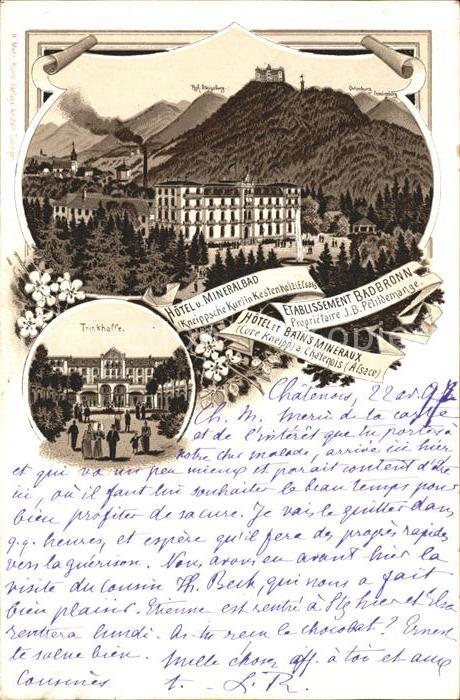 Hoh Königsburg
Ortenburg
Ramstein
HÔTEL u. MINERALBAD
(Kneipp'sche Kur) in Kestenholz i. Elsaß
ETABLISSEMENT BADBRONN
Propriétaire J.B. Petitdemange.
HÔTEL ET BAINS MINERAUX
(Cure Kneipp) à Châtenois (Alsace)
Trinkhalle.
Châtenois, 22 août 97
Ch. M. Merci de la carte
et de l'intérêt que tu portes à
notre cher malade, arrivé ici hier
et qui va un peu mieux et parait content d'être
ici, où il faut lui souhaiter le beau temps pour
bien profiter de sa cure. Je vais le quitter dans
q.q. heures, et espère qu'il fera des progrès rapides
vers la guérison. Nous avons eu avant hier la
visite du cousin Th. Beck, qui nous a fait
bien plaisir. Etienne est rentré à Stg hier et Elsa
rentrera lundi. As-tu reçu le chocolat? Ernest
te salue bien. Mille choses aff. à toi et aux
cousines t. L. R.